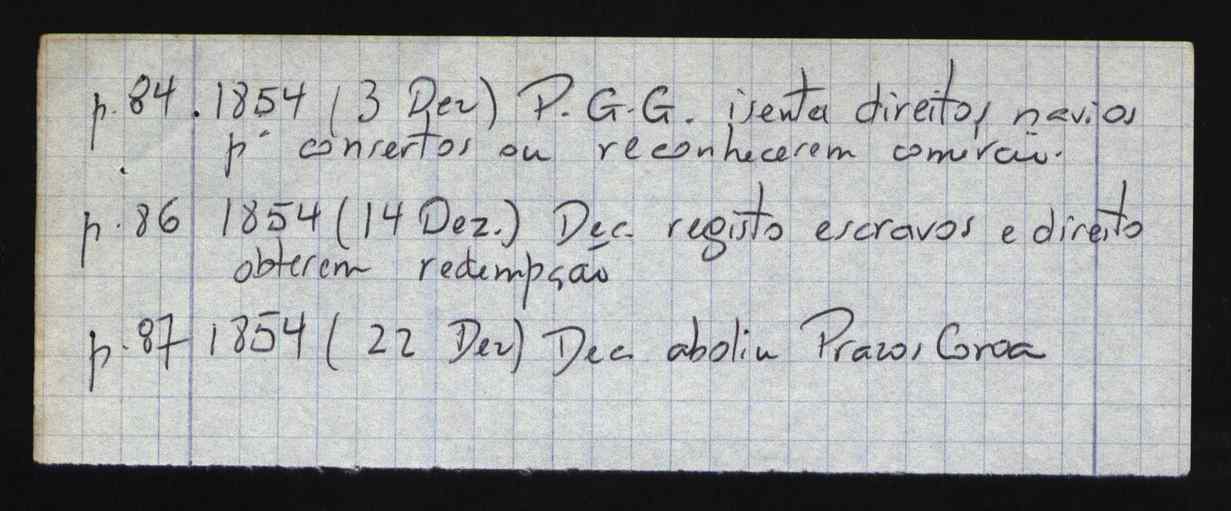 p. 84. 1854 (3 Dez) P. G. G. isenta direitos navios
pª consertos ou reconhecerem comercio.
p. 86 1854 (14 Dez.) Dec. registo escravos e direito
obterem redempção
p. 87 1854 (22 Dez) Dec. aboliu Prazos Coroa